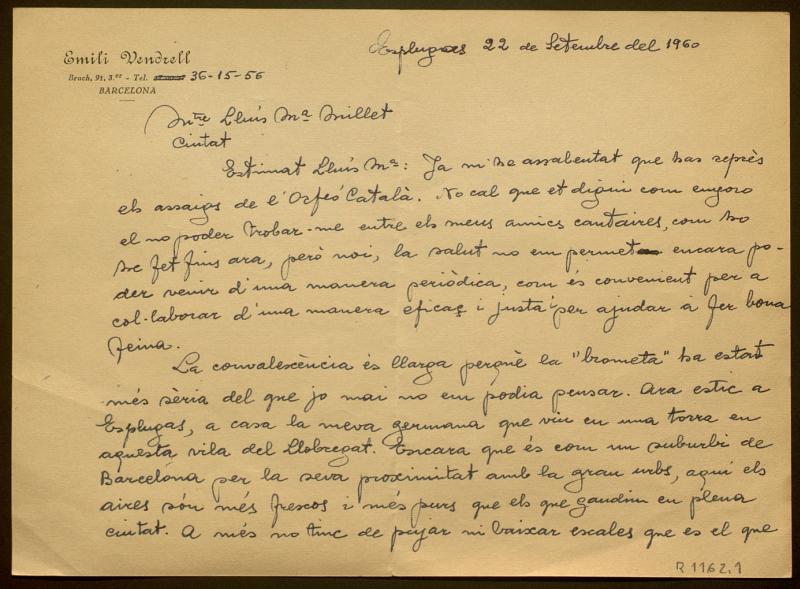 Esplugas 22 de Setembre del 1960
Emili Vendrell
Bruch, 91, 3.er - Tel. 36-15-56
BARCELONA
Mtre Lluís Mª Millet
Ciutat
Estimat Lluís Mª: Ja m'he assabentat que has reprès
els assaigs de l'Orfeó Català. No cal que et digui com enyoro
el no poder trobar-me entre els meus amics cantaires, com ho
he fet fins ara, però noi, la salut no em permet encara po-
der venir d'una manera periòdica, com és convenient per a
col·laborar d'una manera eficaç i justa per ajudar à fer bona
feina.
La convalescència és llarga perquè la "brometa" ha estat
més sèria del que jo mai no em podia pensar. Ara estic a
Esplugas, a casa la meva germana que viu en una torra en
aquesta vila del Llobregat. Encara que és com un suburbi de
Barcelona per la seva proximitat amb la gran urbs, aquí els
aires són més frescos i més purs que els que gaudim en plena
ciutat. A més no tinc de pujar ni baixar escales que es el que
R 1162.1